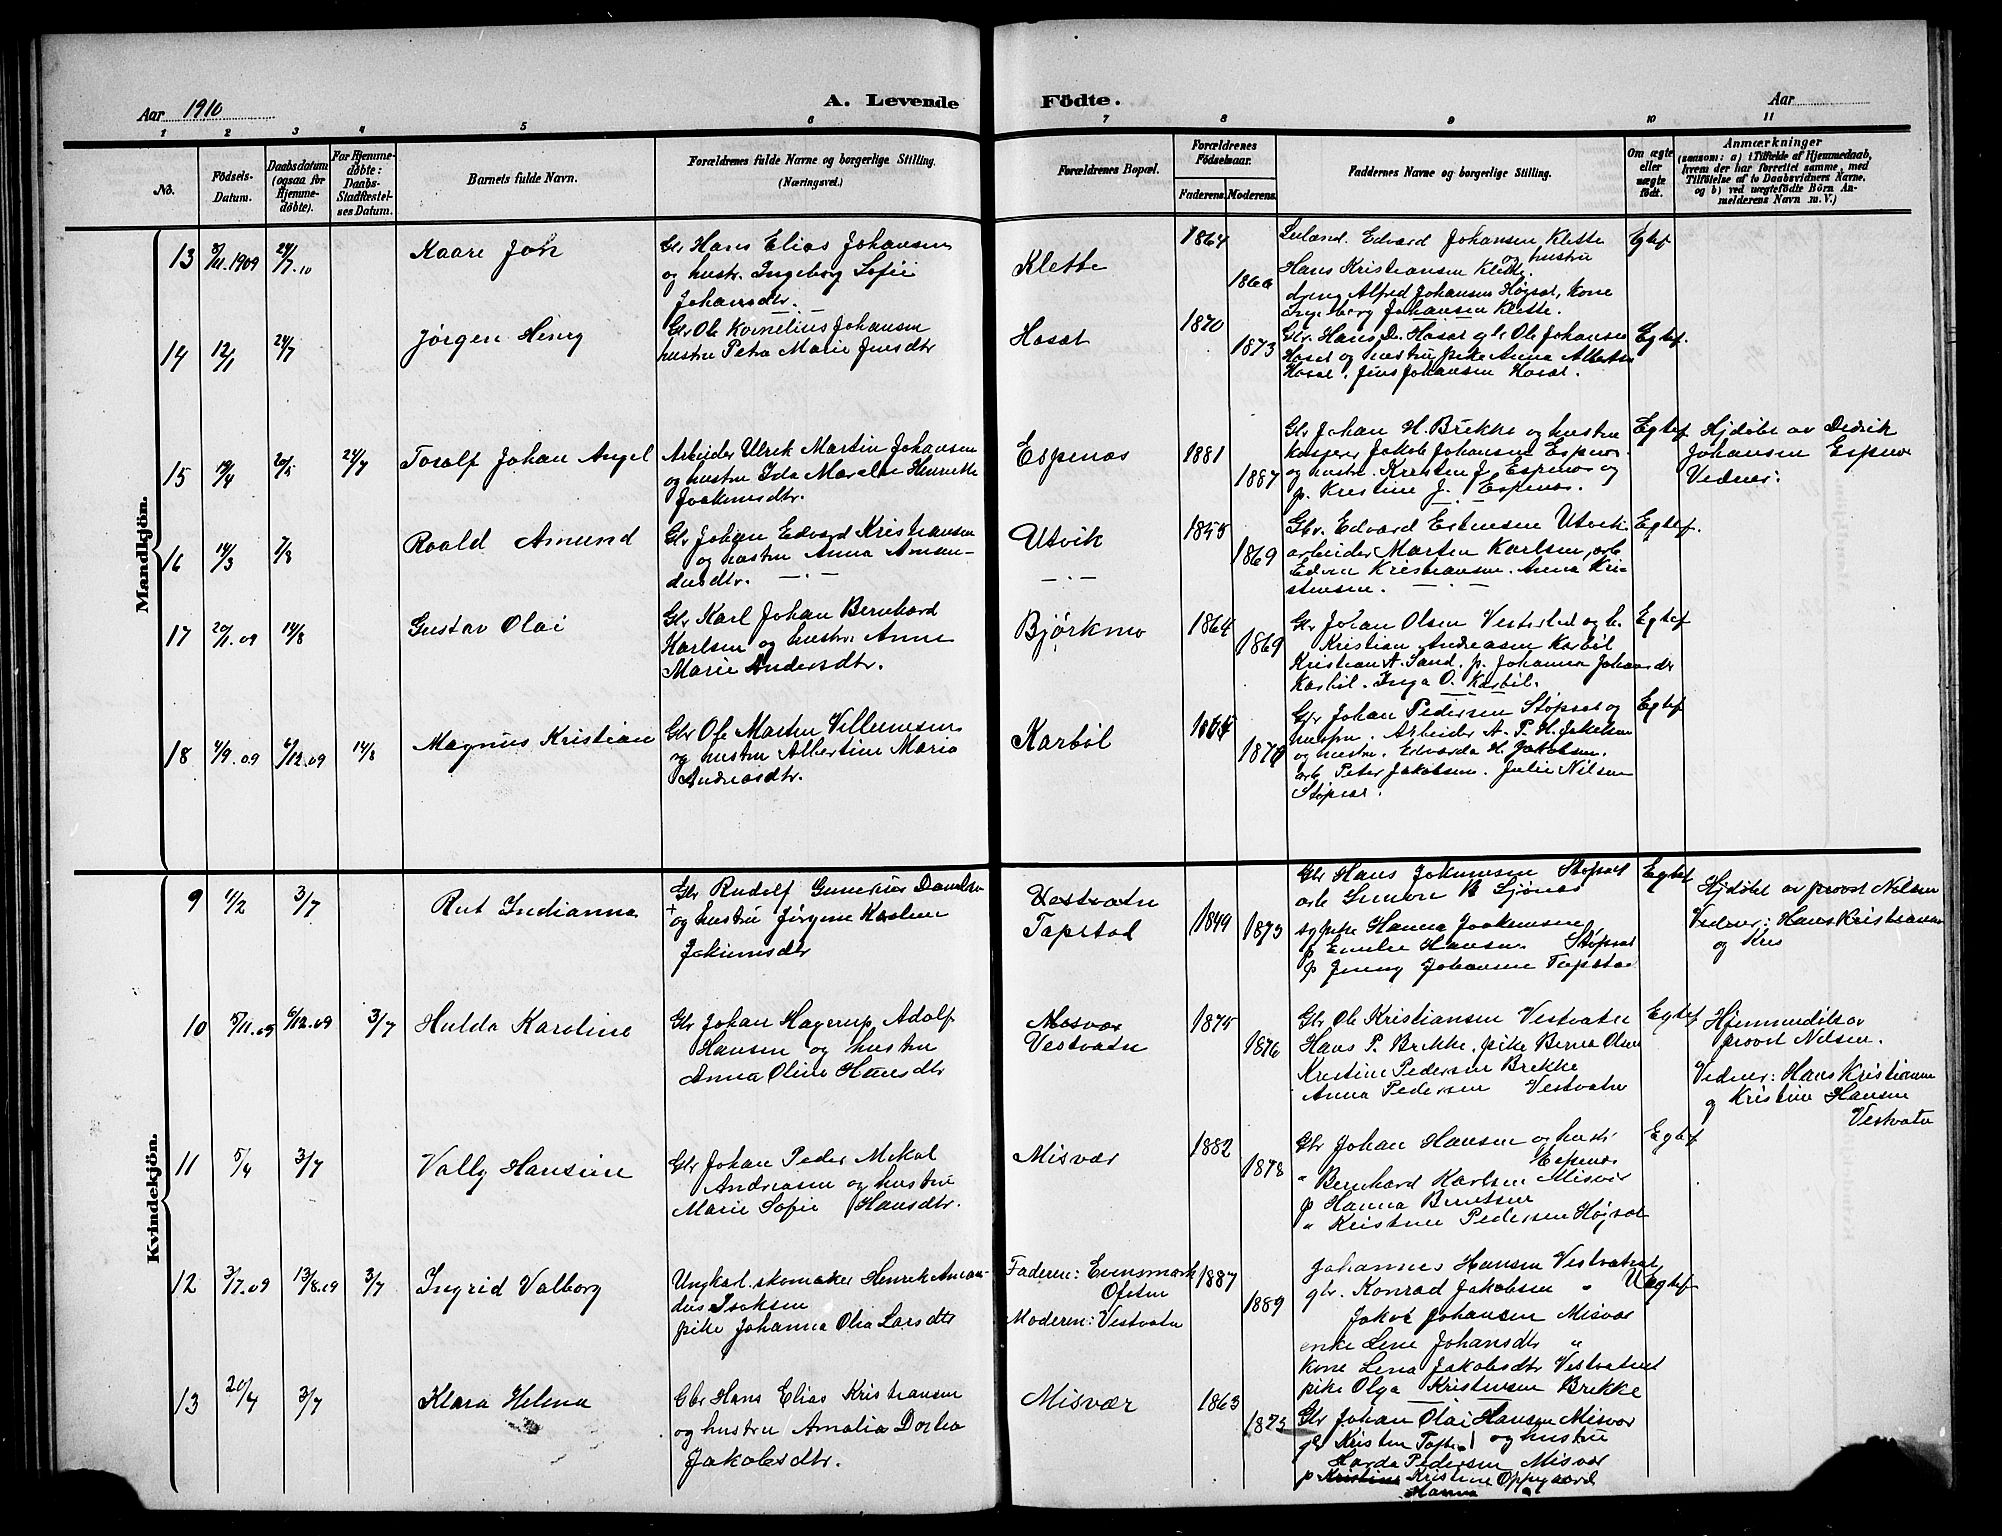 Aar 1910
A. Levende
Födte.
Aar
1 2 3 4 5 6 7 8 9 10 11
No.
Födsels-Datum.
Daabsdatum (ogsaa for Hjemme-døbte).
For Hjemme-døbte: Daabs-Stadfæstel-ses Datum.
Barnets fulde Navn.
Forældrenes fulde Navne og borgerlige Stilling. (Næringsvei.)
Forældrenes Bopæl.
Forældrenes Födselsaar.
Faderens. Moderens.
Faddernes Navne og borgerlige Stilling.
Om ægte eller uægte født.
Anmærkninger
(saasom: a) i Tilfælde af Hjemmedaab, hvem der har forrettet samme, med Tilföielse af to Daabsvidners Navne, og b) ved uægtefödte Börn An-melderens Navn m. V.)
Mandkjön.
13 8/11.1909 24/7.10
Kaare Joh
Gbr Hans Elias Johansen
og hustr. Ingeborg Sofie
Johansdtr.
Klette
1864
1866
Edvard Johansen Klette
og hustru
Hans Kristiansen Klette.
dreng Alfred Johansen Høgset, kone
Ingeborg Johansen Klette.
Egtef
14 12/1 24/7
Jørgen Henry
Gbr Ole Kornelius Johansen
hustru Petra Marie Jensdtr
Hosæt
1870
1873
Gbr. Hans D. Hosæt gbr Ole Johansen
Hosæt og hustru pike Anna Alberts
Hosæt. Jens Johansen Hosæt.
Egtef.
15 19/4 24/7
Toralf Johan Angel
Arbeider Ulrik Martin Johansen
og hustru Ida Maralse Henrikke
Joakimsdtr.
Espenes
1881
1887
Gbr Johan H. Brekke og hustru
Kasper Jakob Johansen Espenes.
og hustr. Kristen J. Espenes og
p. Kristine J. Espenes.
Egtef
Hjdøbt av Didrik
Johansen Espenes
Vidner:
16 14/3 7/8
Roald Amund
Gbr Johan Edvard Kristiansen
og hustru Anna Aman-
dusdtr.
Utvik
1855
1869
Gbr. Edvard Estensen Utvik
arbeider Marten Karlsen, arb
Edvin Kristiansen. Anna Kri-
stensen.
Egtef.
17 20/1.09 14/8
Gustav Olai
Gbr Karl Johan Bernhard
Karlsen og hustr. Anne
Marie Andersdtr.
Bjørkmo
1864
1869
Gbr Johan Olsen Vesterli og h.
Kristian Andreasen Karbøl
Kristian A. Sand. p. Johanna Johansdr
Karbøl. Inga O. Karbøl.
Egtef
18 4/9.09 6/12.09 14/8
Magnus Kristian
Gbr Ole Martin Villumsen
og hustru Albertine Maria
Andreasdtr.
Karbøl
Gbr Johan Pedersen Støpset og
Arbeider A. P. H. Jakobsen
og hustru. Edvarda H. Jakobsen.
arb Peter Jakobsen. Julie Nilsen
Støpset.
Egtef
Kvindekjön.
9 1/2 3/7
Rut Indianna
Gbr Rudolf Gunerius Danielsen
og hustru Jørgine Karoline
Jakimsdtr
Vestvatn
Tapstad
1849
1873
Gbr Hans Jokumsen Støpset
arb Simon B Sjønes
sypike Hanna Joakimsen
p Emilie Hansen Støpset
p Jenny Johansen Tapstad
Egtef
Hjdøbt av provst Nilsen
Vidner: Hans Kristiansen
og Kris
10 5/11.09 6/12.09 3/7
Hulda Karoline
Gbr Johan Hagerup Adolf
Hansen og hustru
Anna Oline Hansdtr
Misvær
Vestvatn
1875
1876
Gbr Ole Kristiansen Vestvatn
Hans P. Brekke, pike Berna Olsen
Kristine Pedersen Brekke
Anna Pedersen Vestvatn
Egtef
Hjemmedøbt av
provst Nilsen.
Vidner: Hans Kristiansen
og Kristine Hansen
Vestvatn
11 5/4 3/7
Vally Hansine
Gbr Johan Peder Mikal
Andreasen og hustru
Marie Sofie Hansdtr.
Misvær
1882
1878
Gbr Johan Hansen og hustr
Espenes
" Bernhard Karlsen Misvær
p Hanna Berntsen
" Kristine Pedersen Høgset
Egtef
12 3/7.09 13/8.09 3/7
Ingrid Valborg
Ungkarl. skomaker Henrik Aman-
dus Isaksen
pike Johanna Olea Larsdtr
Faderen: Evensmark
Ofoten
Moderen: Vestvatn
1887
1889
Johannes Hansen Vestvatnet
gbr. Konrad Jakobsen "
Jakob Johansen Misvær
enke Lene Johansdtr "
Kone Lena Jakobsdtr Vestvatnet
pike Olga Kristensen Brekke
Uegtef
13 20/4 3/7
Klara Helena
Gbr Hans Elias Kristiansen
og hustru Amalia Dorthea
Jakobsdtr.
Misvær
1863
1873
Gbr Johan Olai Hansen Misvær
gbr Kristen Tofte og hustru
Harda Pedersen Misvær
p Kristine Kristine Oppegaard
Hanna